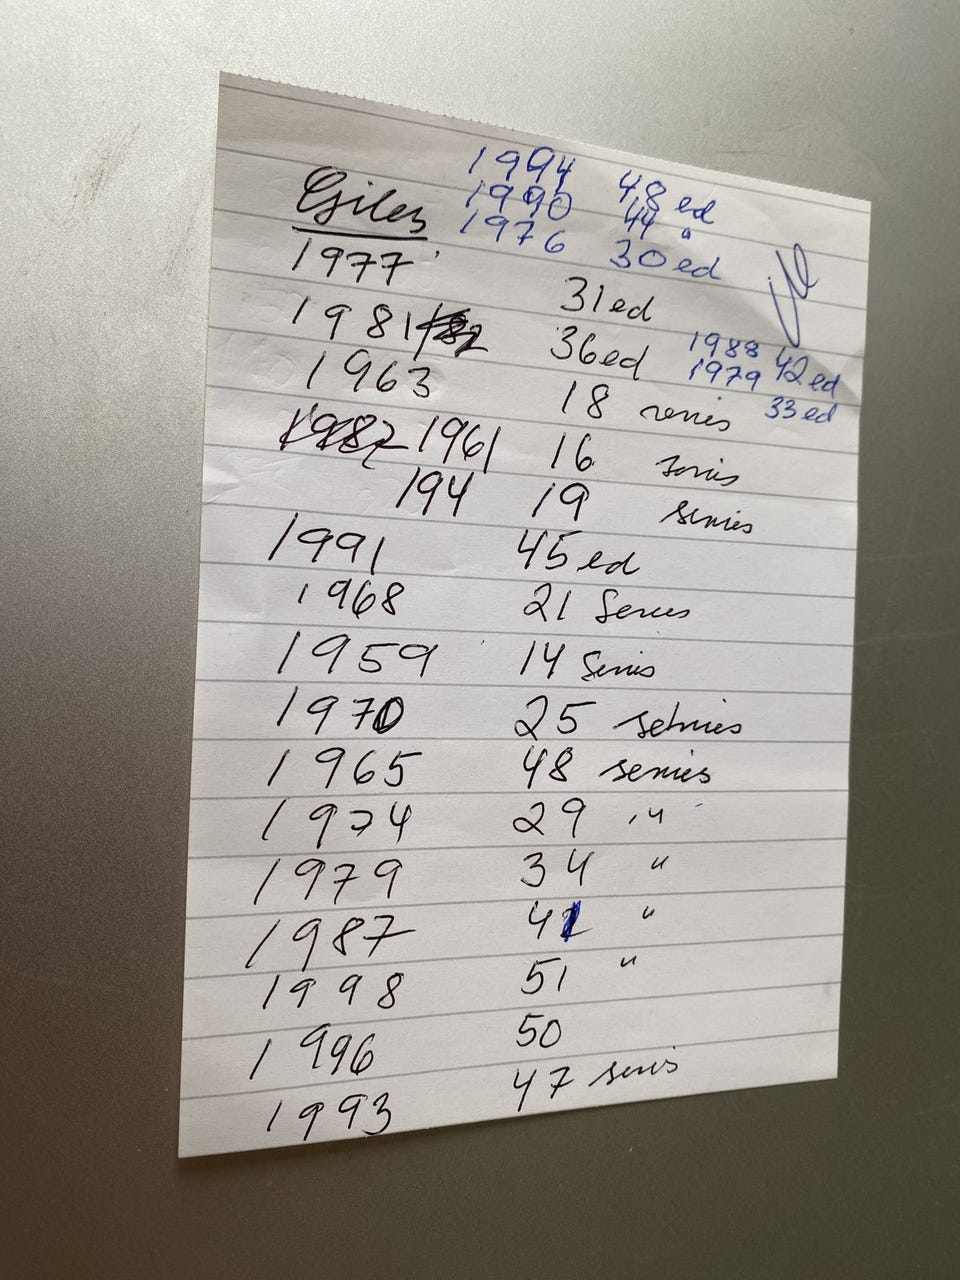 1994 48 ed
1990 44 "
1976 30 ed
Giles
1977 31 ed
1981 36 ed
1988 42 ed
1979 33 ed
1963 18 series
1961 16 series
194 19 series
1991 45 ed
1968 21 Series
1959 14 Series
1970 25 series
1965 48 series
1974 29 "
1979 34 "
1987 41 "
1998 51 "
1996 50
1993 47 series